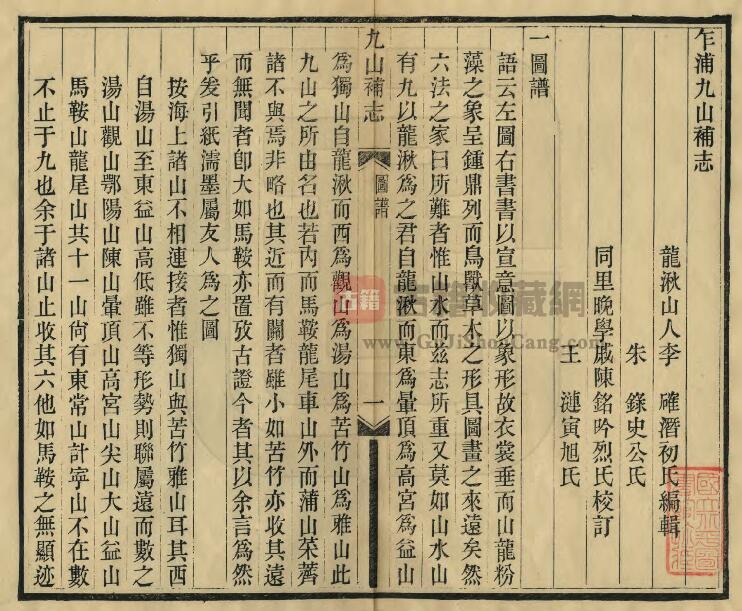 乍浦九山補志
龍湫山人李　確潛初氏編輯
朱　錄史公氏
同里晚學戚陳銘吟烈氏校訂
王　漣寅旭氏
一圖譜
語云左圖右書書以宣意圖以象形故衣裳垂而山龍粉
藻之象呈鍾鼎列而鳥獸草木之形具圖畫之來遠矣然
六法之家曰所難者惟山水而茲志所重又莫如山水山
有九以龍湫爲之君自龍湫而東爲暈頂爲高宮爲益山
九山補志
圖譜
一
爲獨山自龍湫而西爲觀山爲湯山爲苦竹山爲雅山此
九山之所由名也若内而馬鞍龍尾車山外而蒲山菜薺
諸不與焉非略也其近而有關者雖小如苦竹亦收其遠
而無聞者卽大如馬鞍亦置攷古證今者其以余言爲然
乎爰引紙濡墨屬友人爲之圖
按海上諸山不相連接者惟獨山與苦竹雅山耳其西
自湯山至東益山高低雖不等形勢則聯屬遠而數之
湯山觀山鄂陽山陳山暈頂山高宮山尖山大山益山
馬鞍山龍尾山共十一山尙有東常山計寧山不在數
不止于九也余于諸山止收其六他如馬鞍之無顯迹
古籍
古籍收藏網
www.GuJiShouCang.com